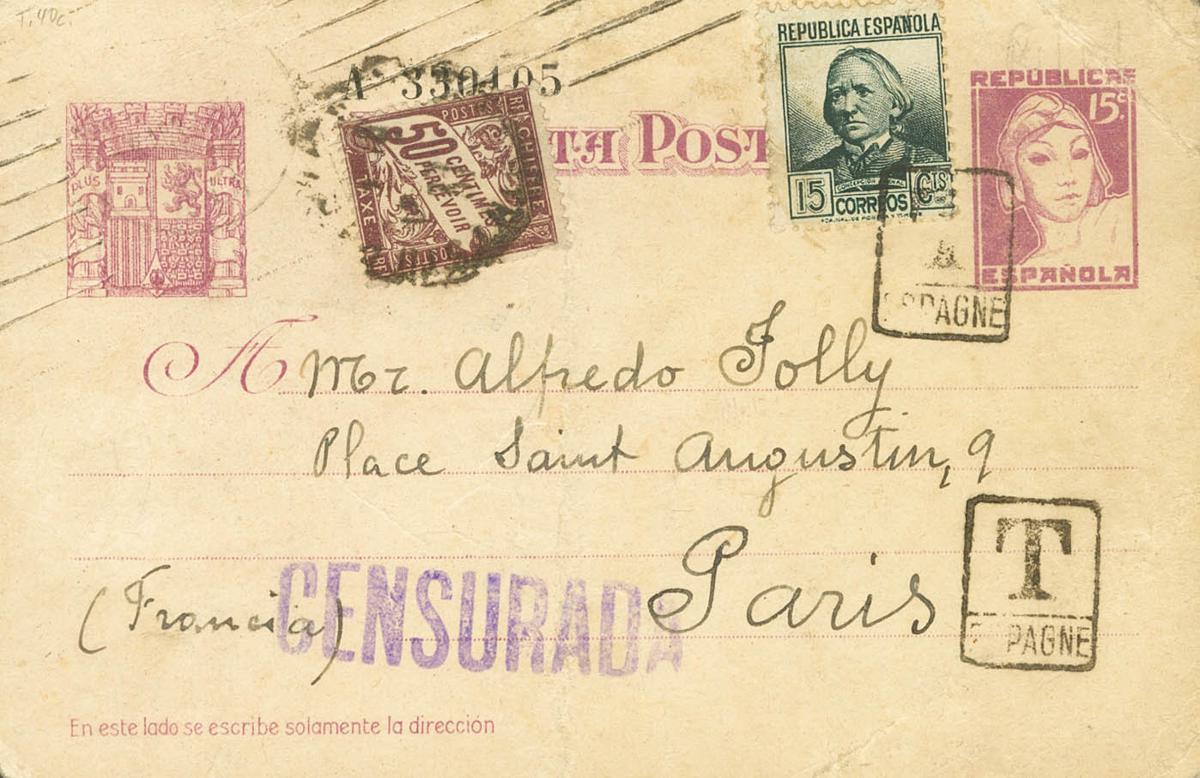 T. 40c.
A 330105
REPUBLICA ESPAÑOLA
15 Cts
CONCEPCION ARENAL
CORREOS
REPÚBLICA
15c.
ESPAÑOLA
PLUS ULTRA
POSTES
50 CENTIMES
A PERCEVOIR
TAXE
POSTES
TA POST
ESPAGNE
A Mr. Alfredo Jolly
Place Saint Augustin, 9
Paris
T
E PAGNE
(Francia)
CENSURADA
En este lado se escribe solamente la dirección